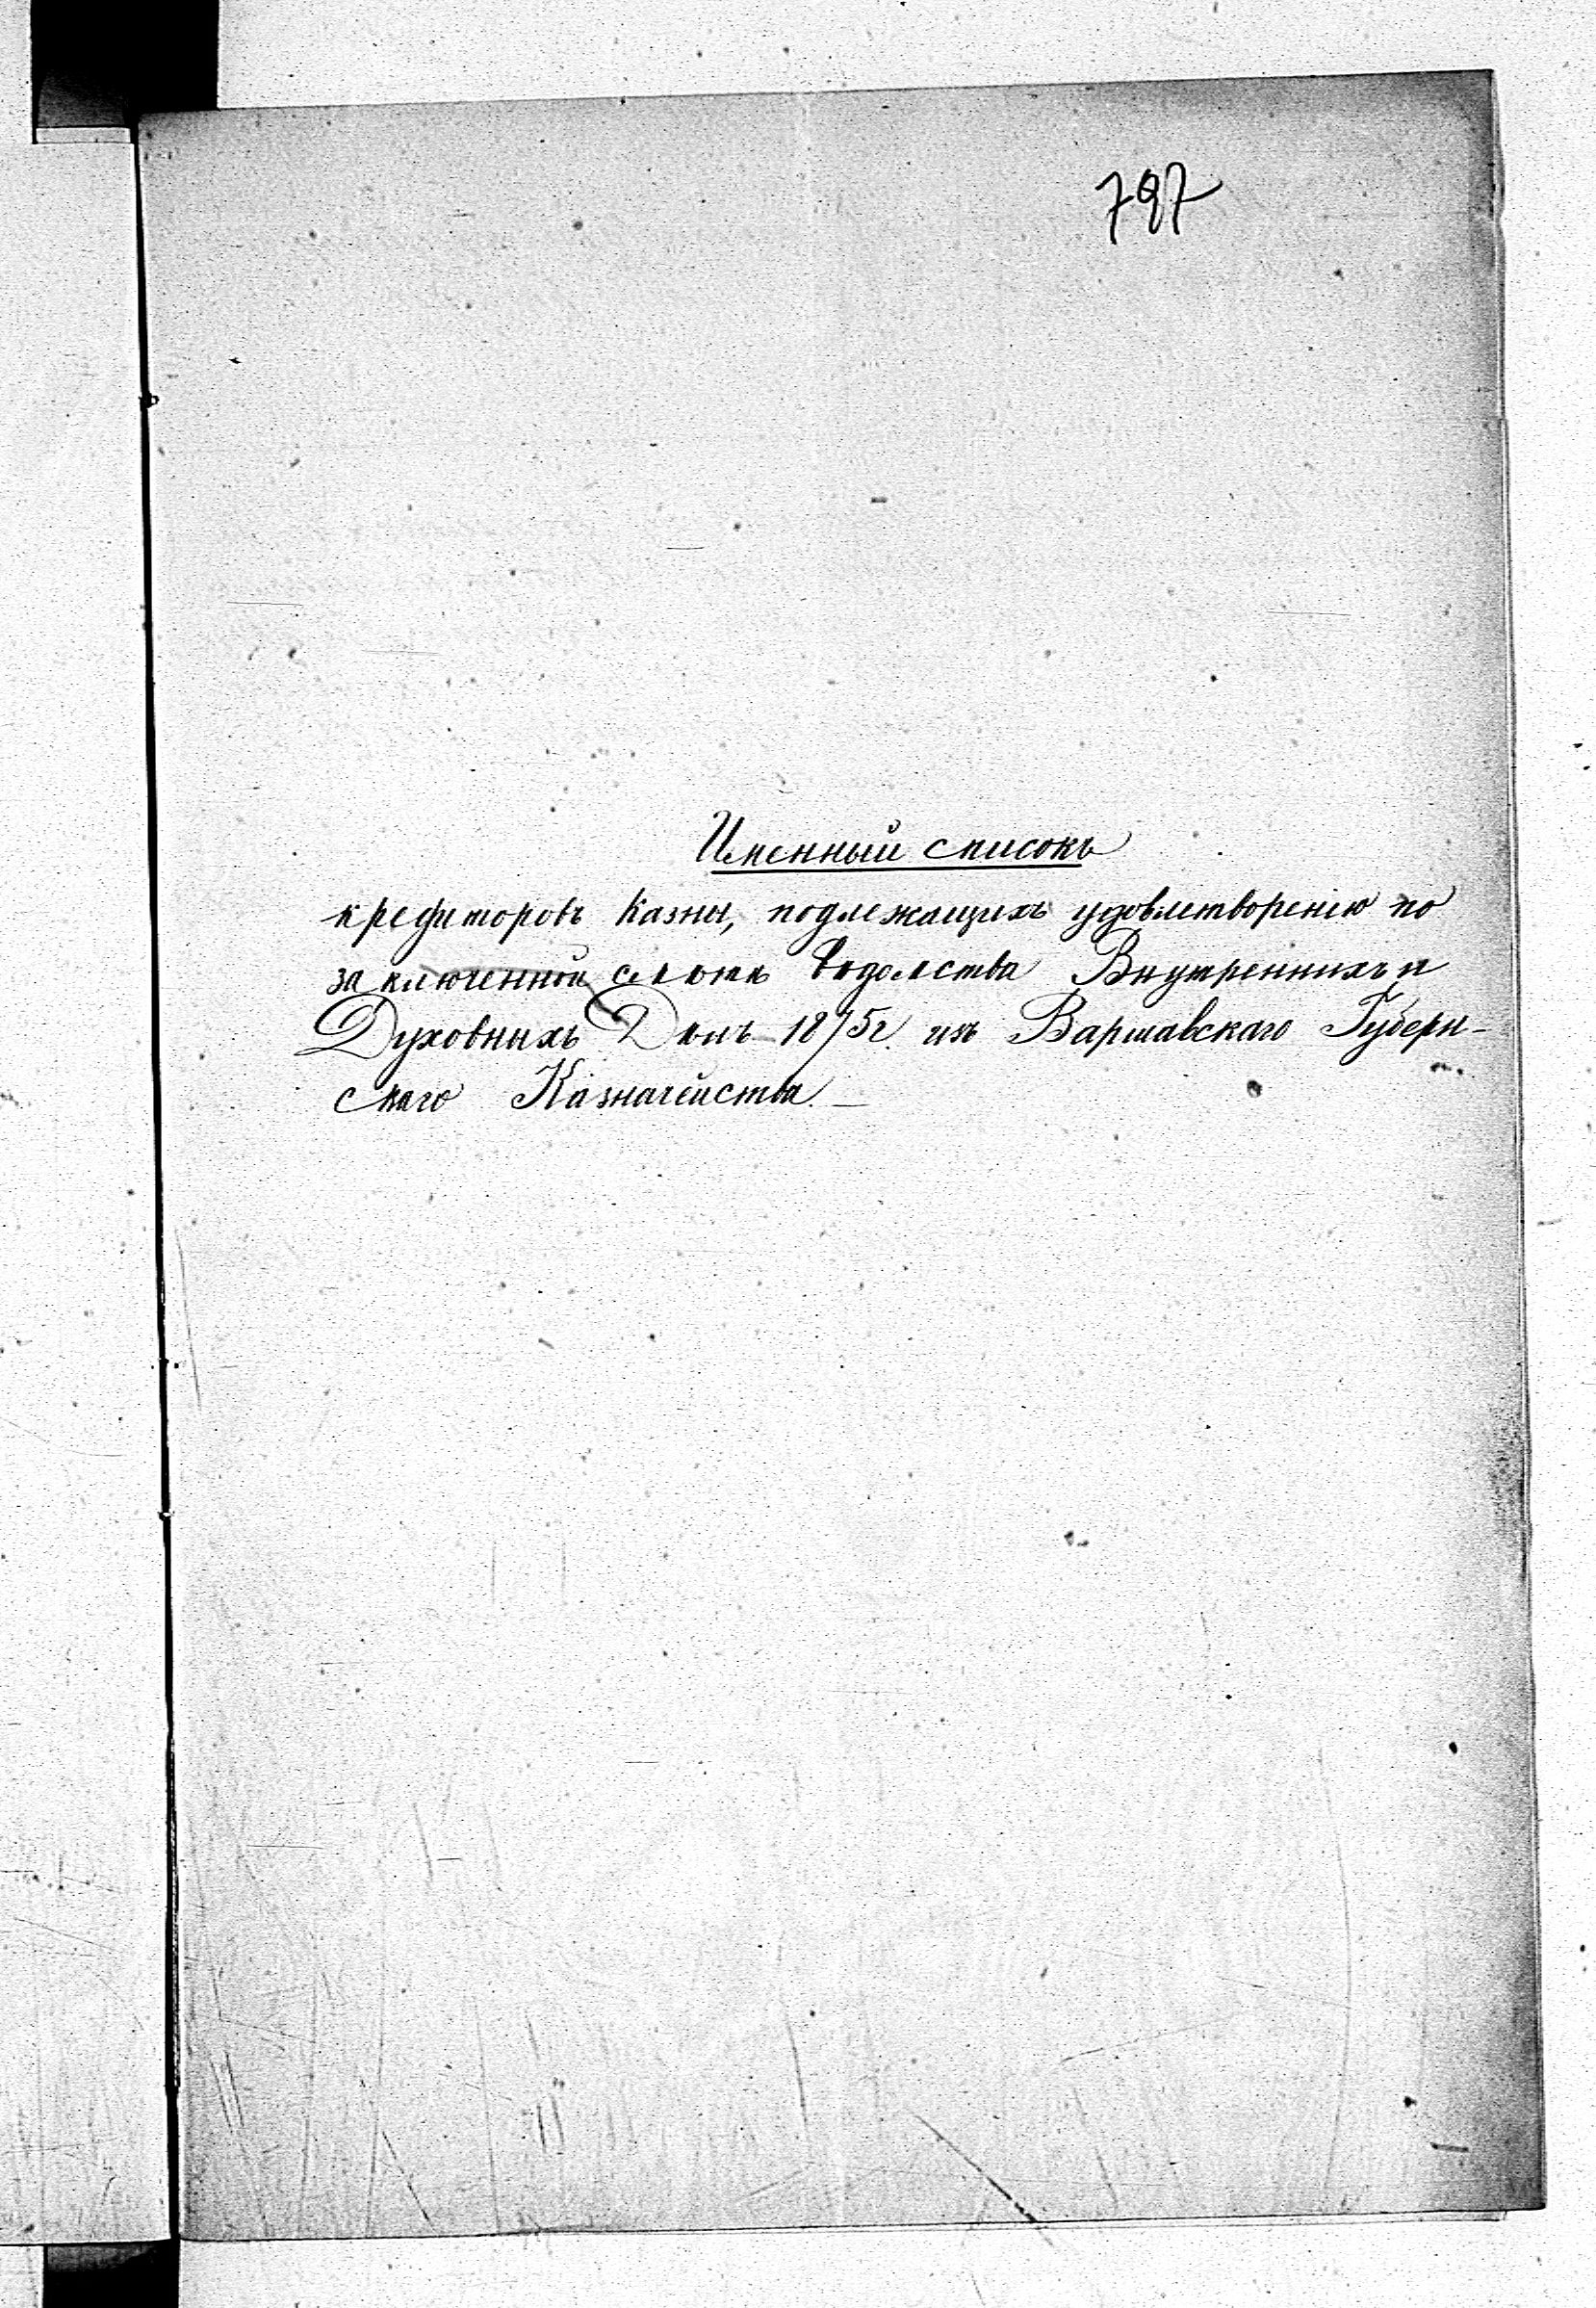 797
Именный списокъ
кредиторовъ Казны, подлежащихъ удовлетворенію по
заключенной смѣтѣ Вѣдомства Внутреннихъ и
Духовныхъ Дѣлъ 1875 г. изъ Варшавскаго Губерн-
скаго Казначейства. —